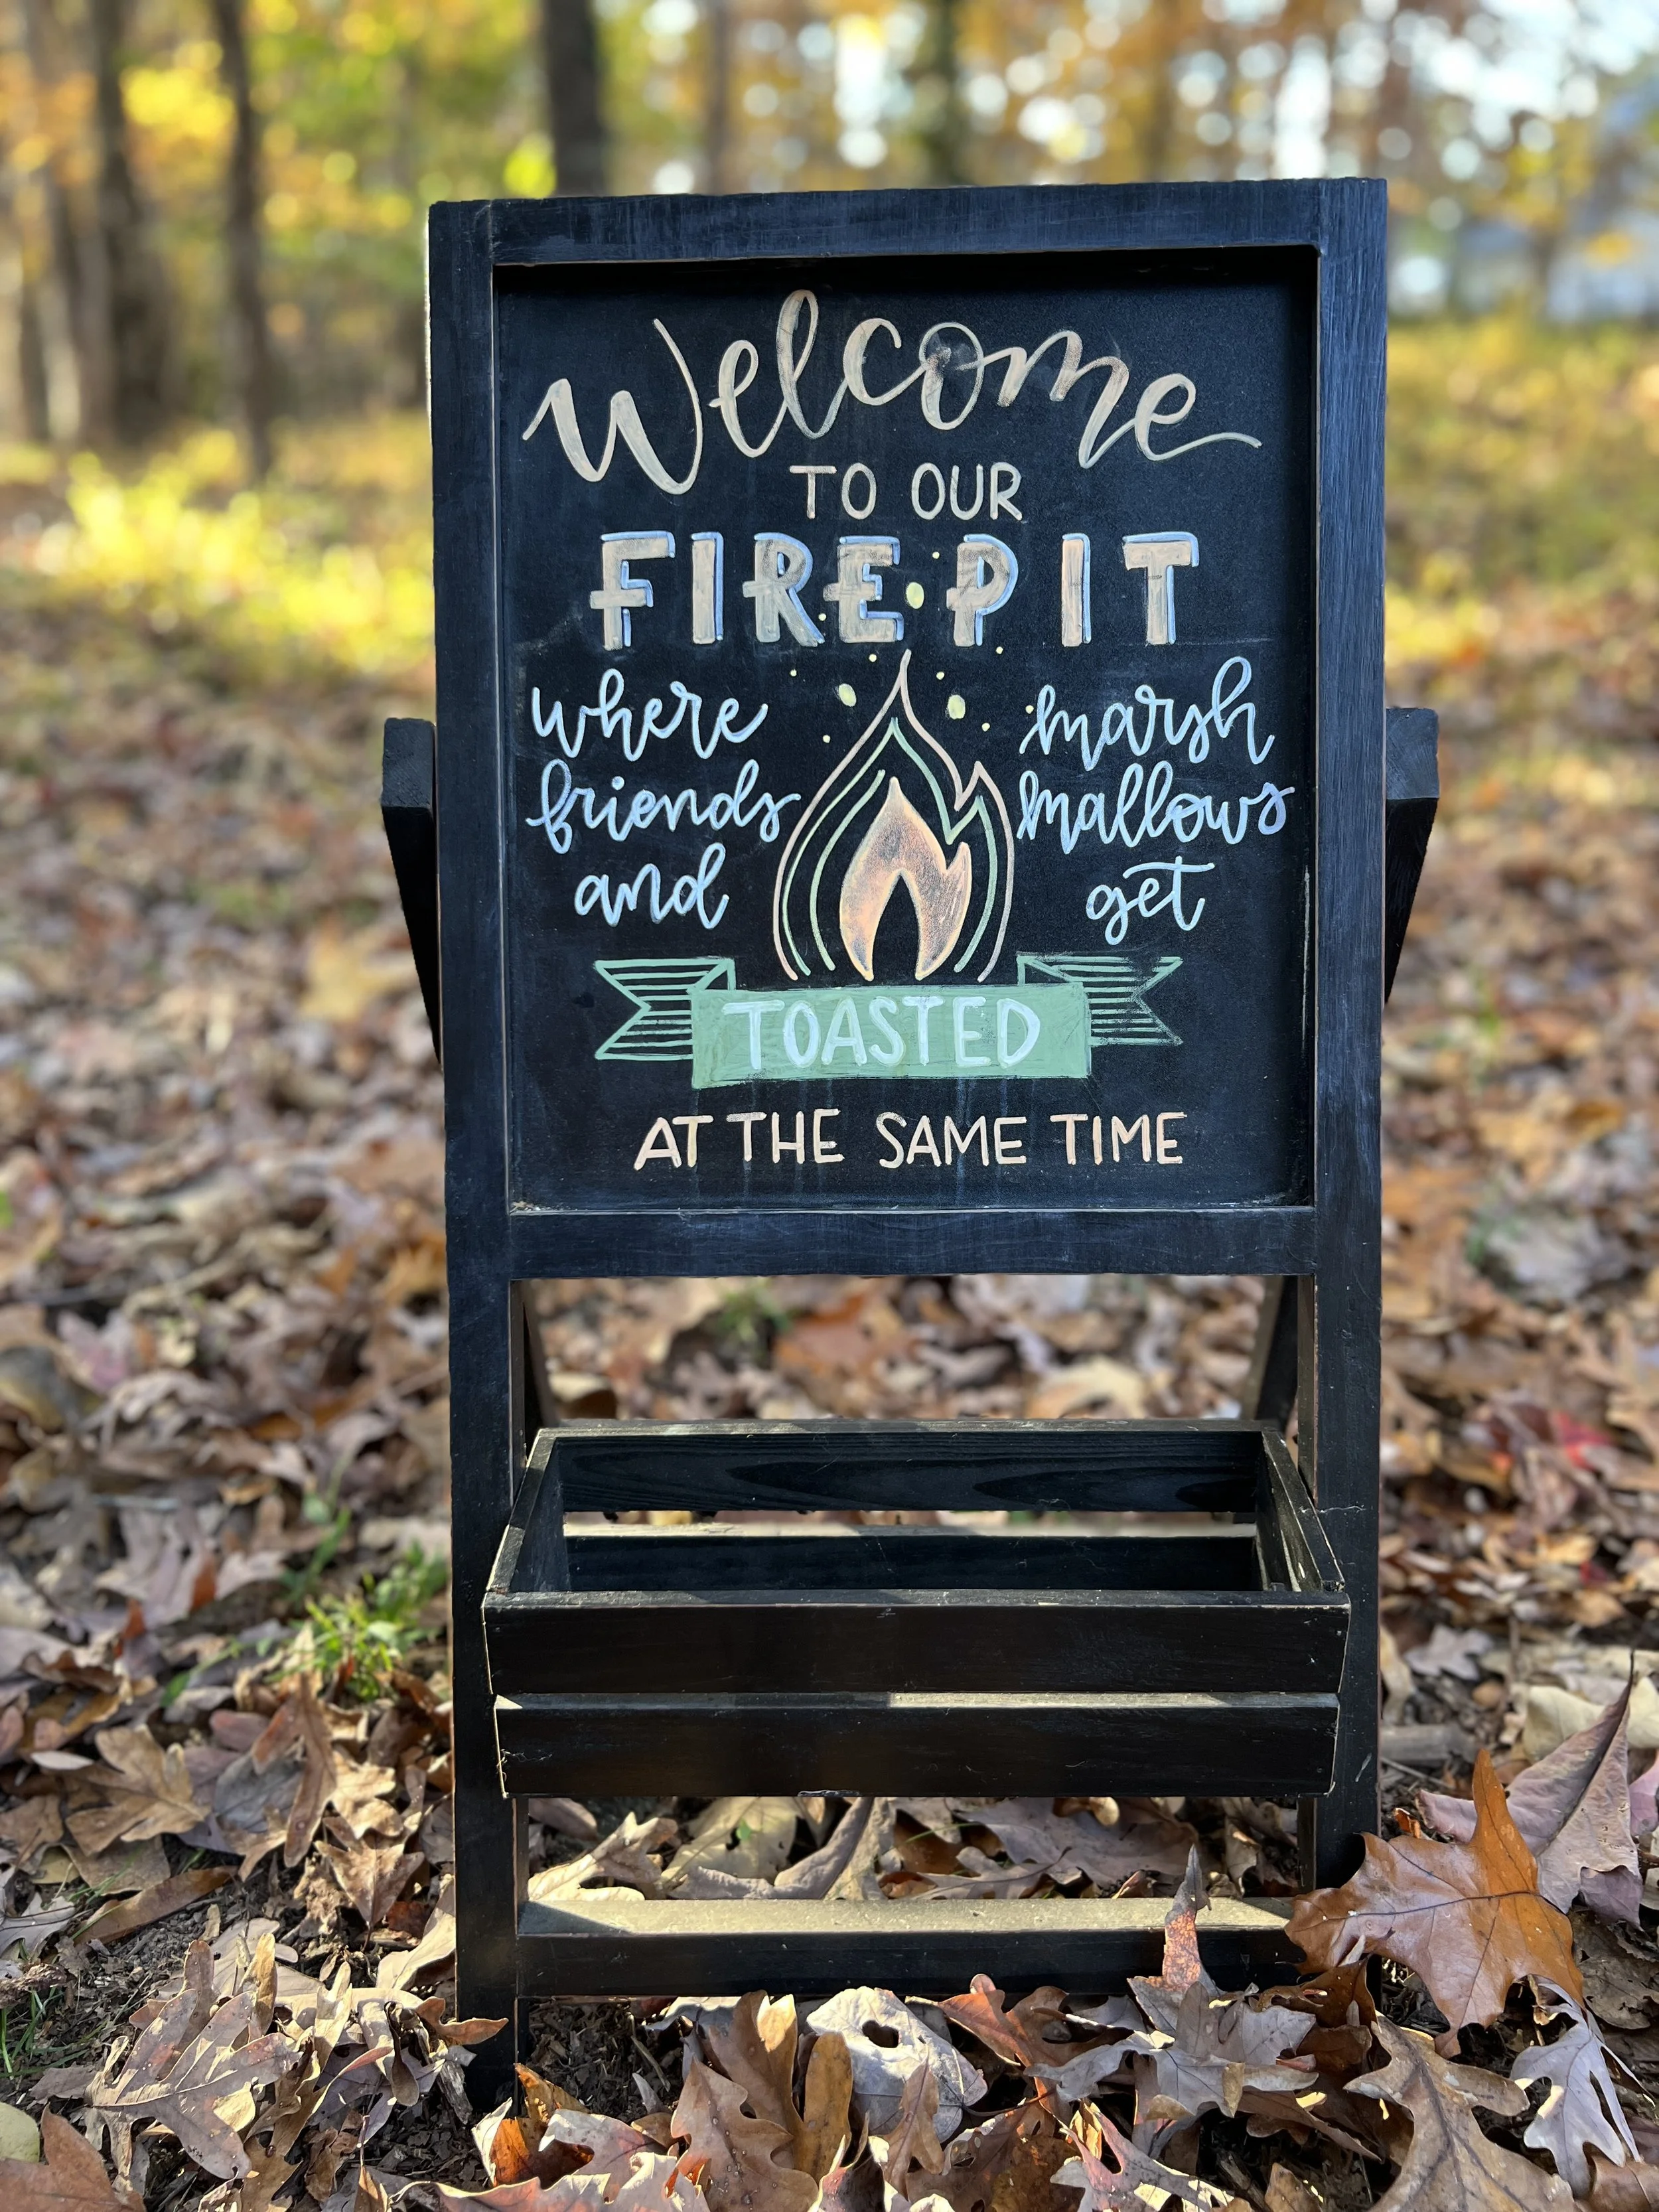 Welcome
TO OUR
FIRE PIT
where
friends
and
marsh
mallows
get
TOASTED
AT THE SAME TIME